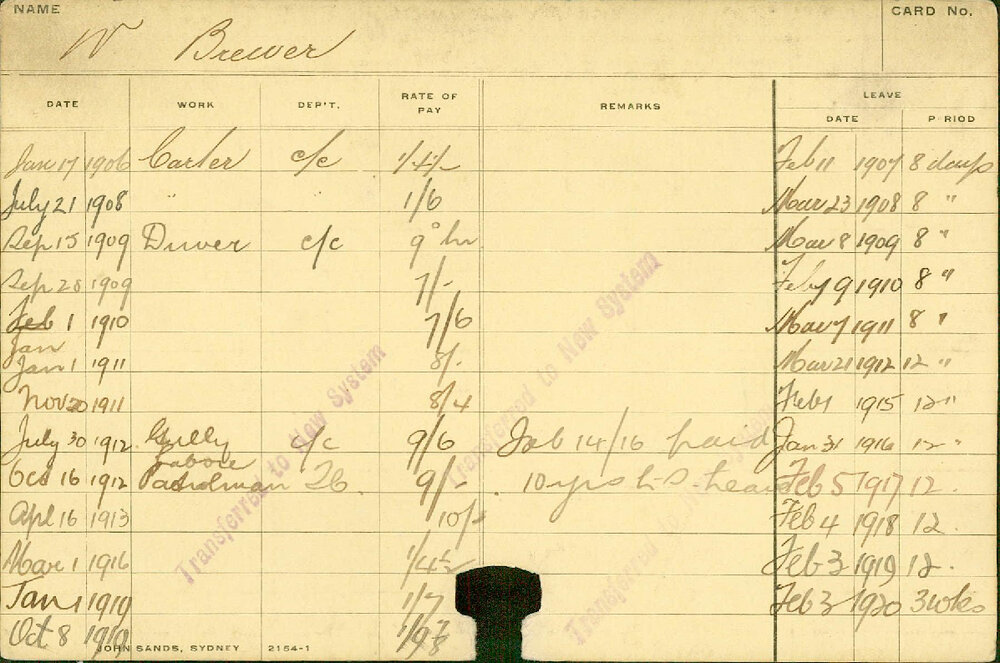 NAME
CARD No.
W Brewer
DATE WORK DEP'T. RATE OF PAY REMARKS LEAVE
DATE PERIOD
Jan 17 1906 Carter c/c Feb 11 1907 8 days
July 21 1908 " 1/6 Mar 23 1908 8 "
Sep 15 1909 Driver c/c 9° hr Mar 8 1909 8 "
Sep 28 1909 7/- Feby 9 1910 8 "
Feb 1 1910 7/6 Mar 7 1911 8 "
Jan
Jan 1 1911 8/- Mar 21 1912 12 "
Nov 20 1911 8/4 Feb 1 1915 12 "
July 30 1912 Gully c/c 9/6 Job 14/16 paid Jan 31 1916 12 "
Oct 16 1912 Patrolman 26 9/- 10 yrs Feb 5 1917 12
Apl 16 1913 10/- Feb 4 1918 12.
Mar 1 1916 1/4½ Feb 3 1919 12.
Jan 1 1919 1/7 Feb 2 1920 3 wks
Oct 8 1919
Transferred to New System
Transferred to New System
Transferred to
JOHN SANDS, SYDNEY 2154-1